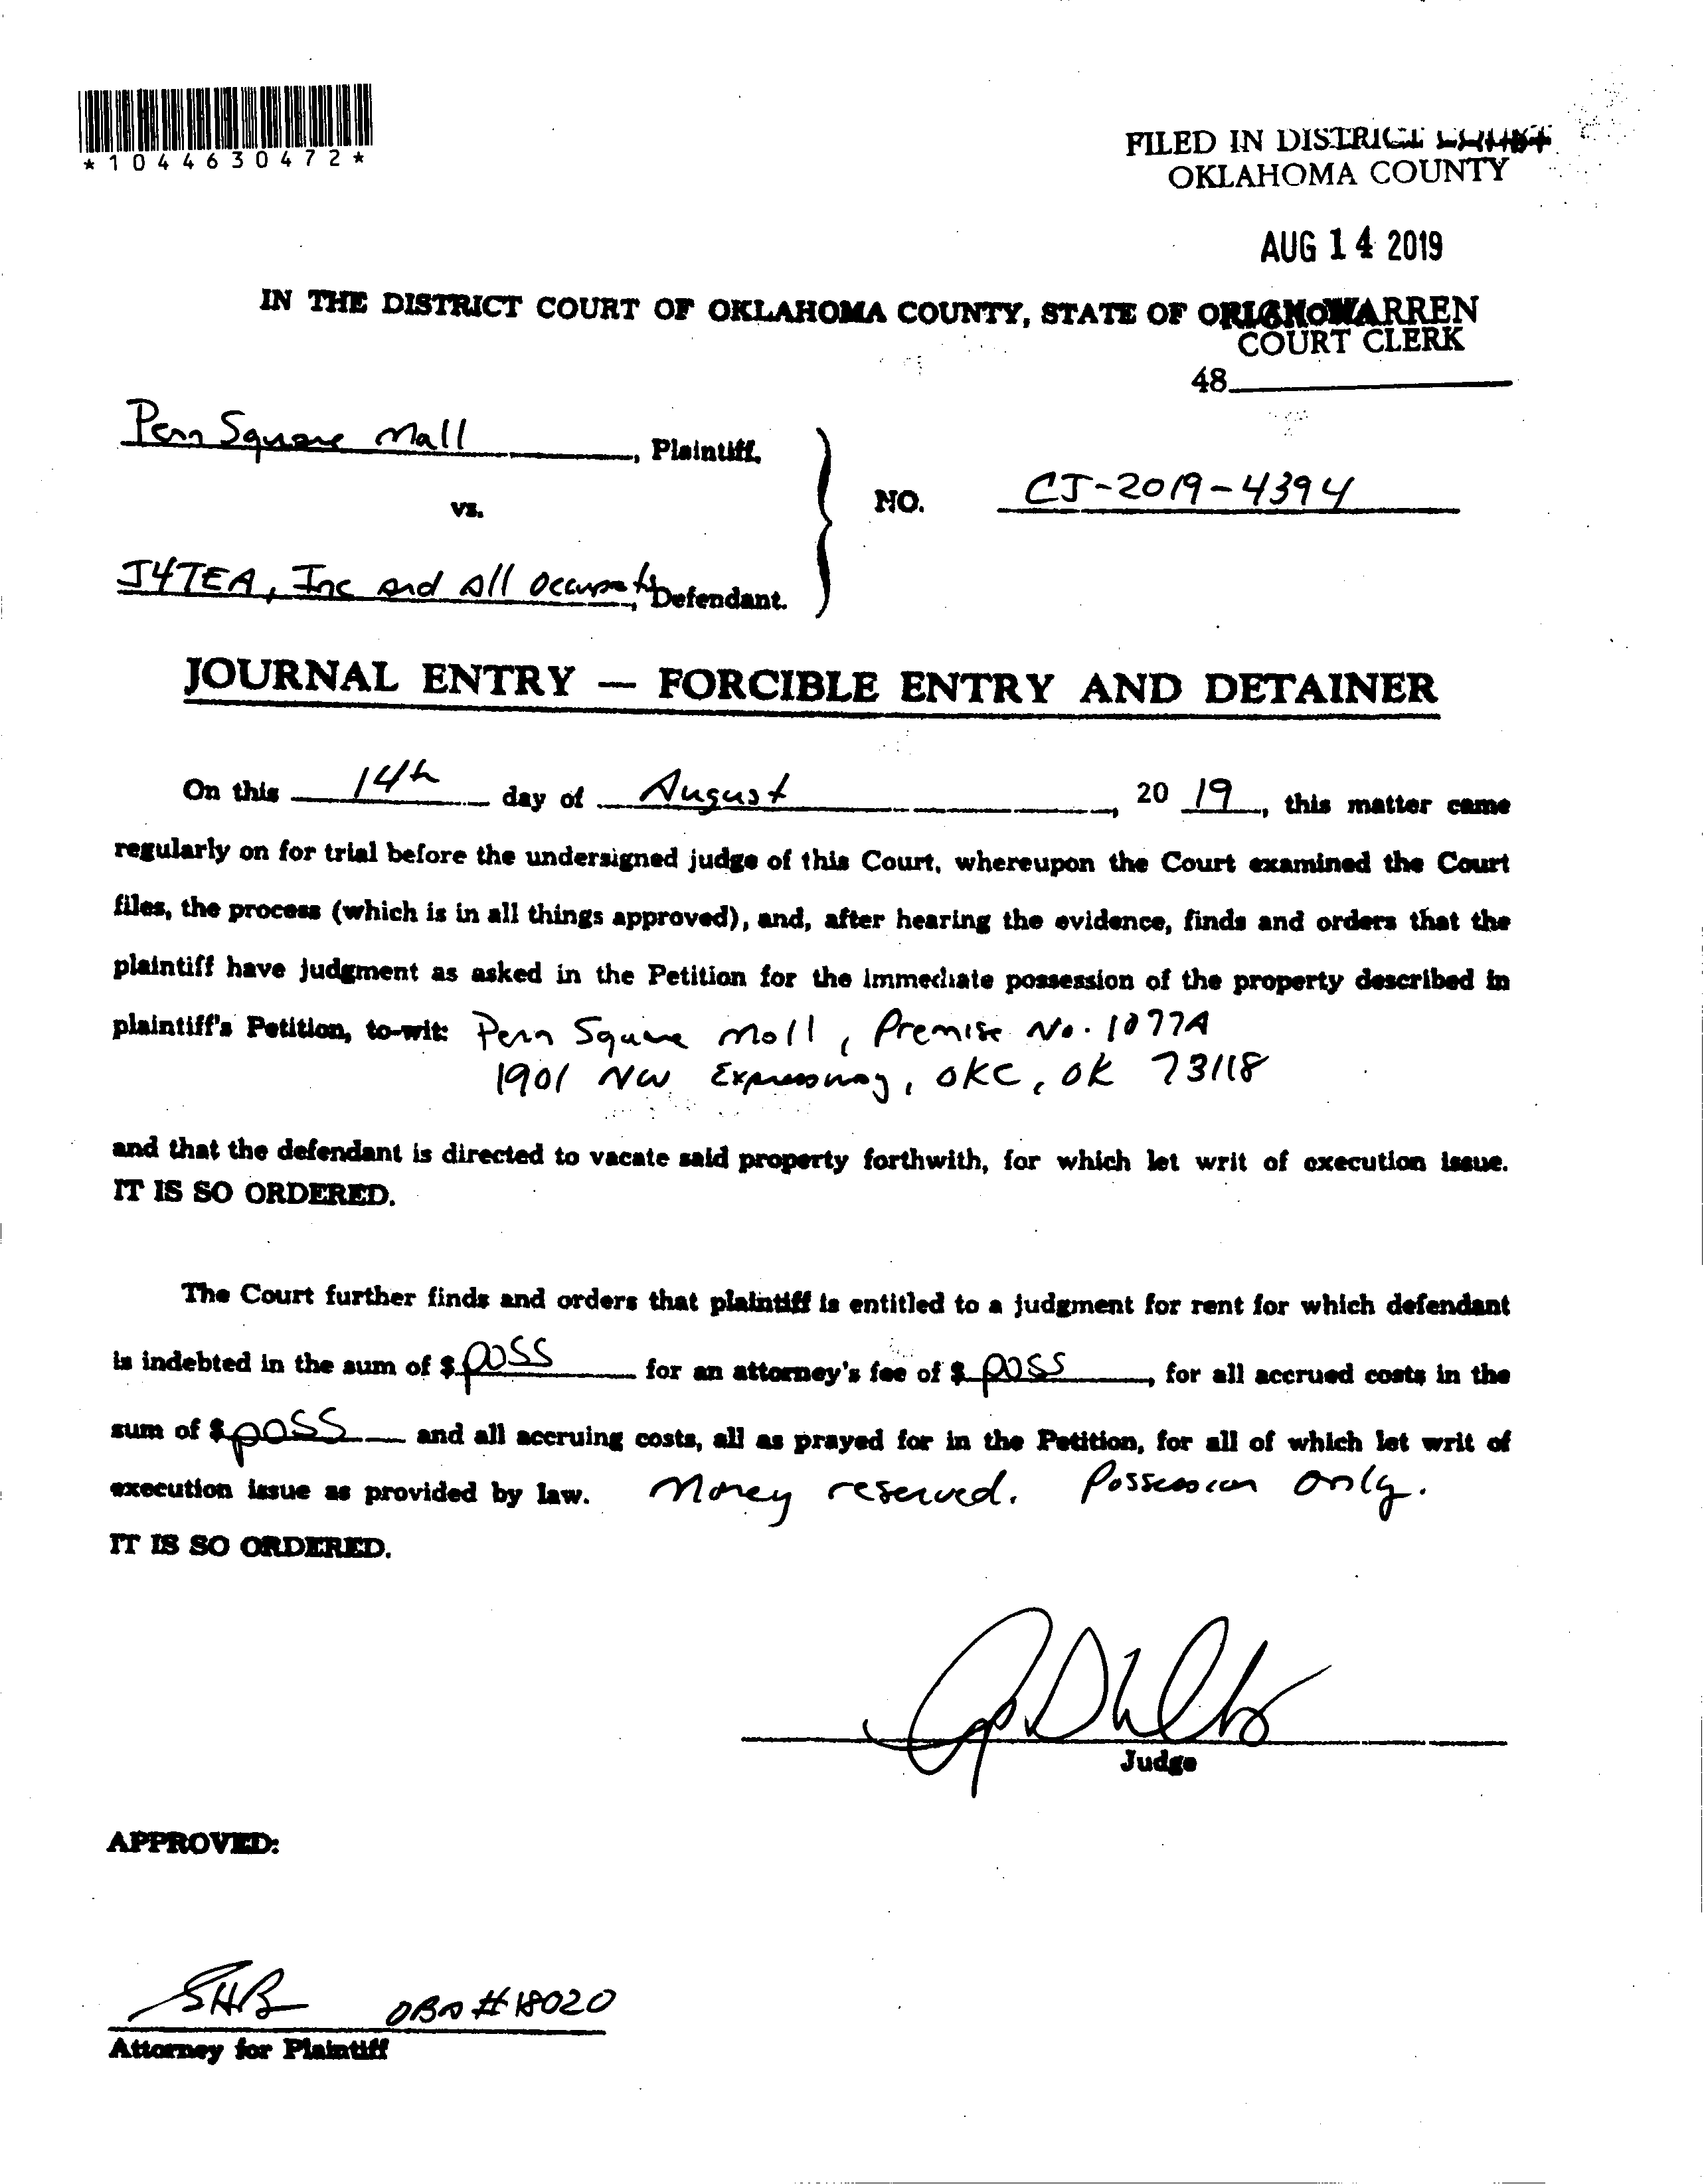 *1044630472*
FILED IN DISTRICT COURT
OKLAHOMA COUNTY
AUG 14 2019
IN THE DISTRICT COURT OF OKLAHOMA COUNTY, STATE OF
WARREN
COURT CLERK
48
Penn Square Mall, Plaintiff,
vs.
NO. CJ-2019-4394
J4TEA, Inc and All Occupants, Defendant.
JOURNAL ENTRY — FORCIBLE ENTRY AND DETAINER
On this 14th day of August, 20 19, this matter came
regularly on for trial before the undersigned judge of this Court, whereupon the Court examined the Court
files, the process (which is in all things approved), and, after hearing the evidence, finds and orders that the
plaintiff have judgment as asked in the Petition for the immediate possession of the property described in
plaintiff's Petition, to-wit: Penn Square Mall, Premise No. 1077A
1901 NW Expressway, OKC, OK 73118
and that the defendant is directed to vacate said property forthwith, for which let writ of execution issue.
IT IS SO ORDERED.
The Court further finds and orders that plaintiff is entitled to a judgment for rent for which defendant
is indebted in the sum of $ poss for an attorney's fee of $ poss, for all accrued costs in the
sum of $ poss and all accruing costs, all as prayed for in the Petition, for all of which let writ of
execution issue as provided by law. Money reserved. Possession only.
IT IS SO ORDERED.
Judge
APPROVED:
SHB OBA #18020
Attorney for Plaintiff